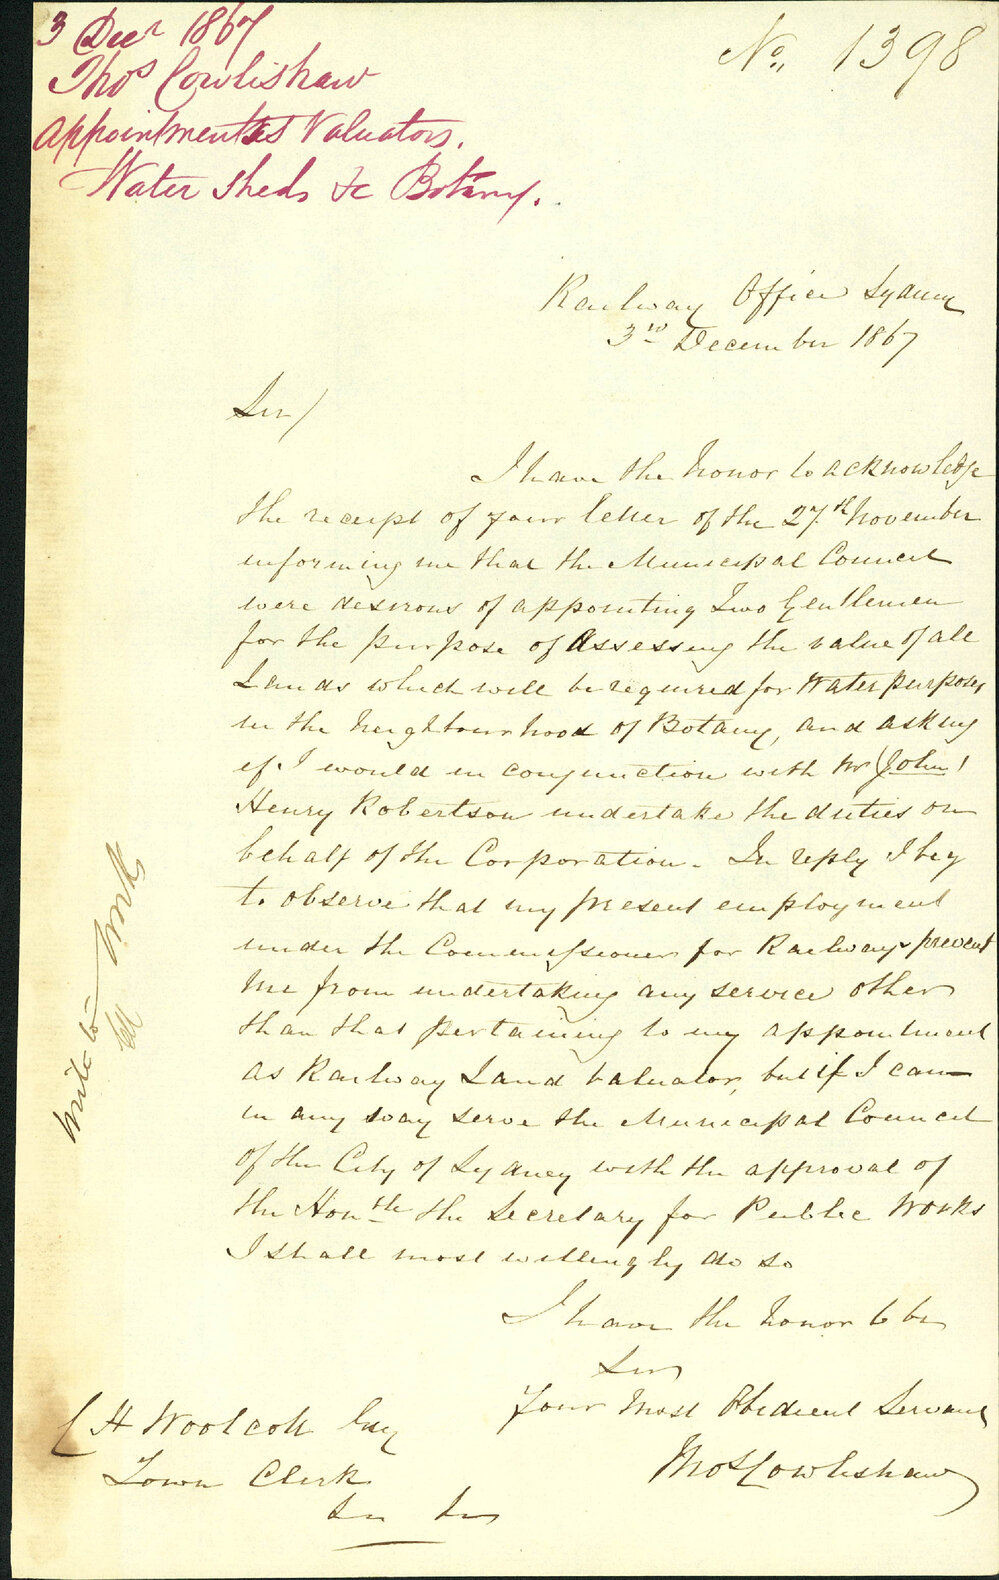 3 Decr 1867
Thos Cowlishaw
Appointment as Valuators.
Water Sheds &c Botany.
No. 1398
Railway Office Sydney
3rd December 1867
Sir/
I have the honor to acknowledge
the receipt of your letter of the 27th November
informing me that the Municipal Council
were desirous of appointing Two Gentlemen
for the purpose of Assessing the value of all
Lands which will be required for Water purposes
in the Neighbourhood of Botany, and asking
if I would in conjunction with Mr (John)
Henry Robertson undertake the duties on
behalf of the Corporation. In reply I beg
to observe that my present employment
under the Commissioner for Railways prevent
me from undertaking any service other
than that pertaining to my appointment
as Railway Land Valuator, but if I can
in any way serve the Municipal Council
of the City of Sydney with the approval of
the Honble the Secretary for Public Works
I shall most willingly do so
I have the honor to be
Sir
Your Most Obedient Servant
Thos Cowlishaw
C H Woolcott Esq
Town Clerk
Write to
Works